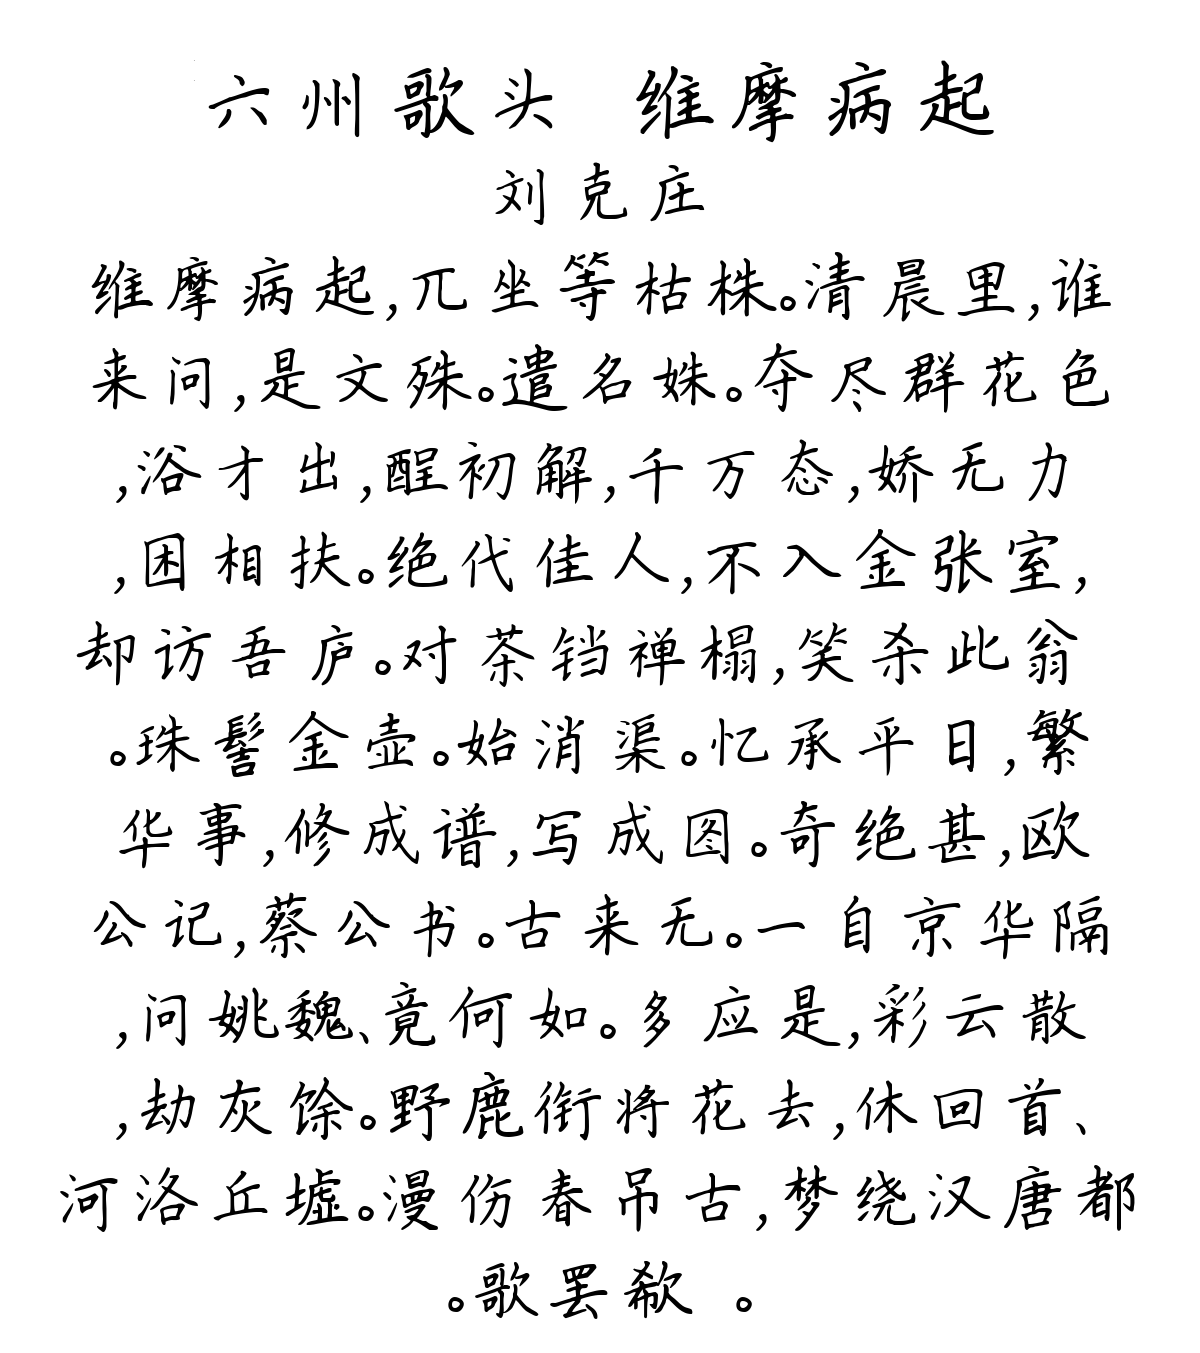 六州歌头 维摩病起
刘克庄
维摩病起,兀坐等枯株。清晨里,谁
来问,是文殊。遣名姝。夺尽群花色
,浴才出,酲初解,千万态,娇无力
,困相扶。绝代佳人,不入金张室,
却访吾庐。对茶铛禅榻,笑杀此翁
。珠髻金壶。始消渠。忆承平日,繁
华事,修成谱,写成图。奇绝甚,欧
公记,蔡公书。古来无。一自京华隔
,问姚魏、竟何如。多应是,彩云散
,劫灰馀。野鹿衔将花去,休回首、
河洛丘墟。漫伤春吊古,梦绕汉唐都
。歌罢欷 。